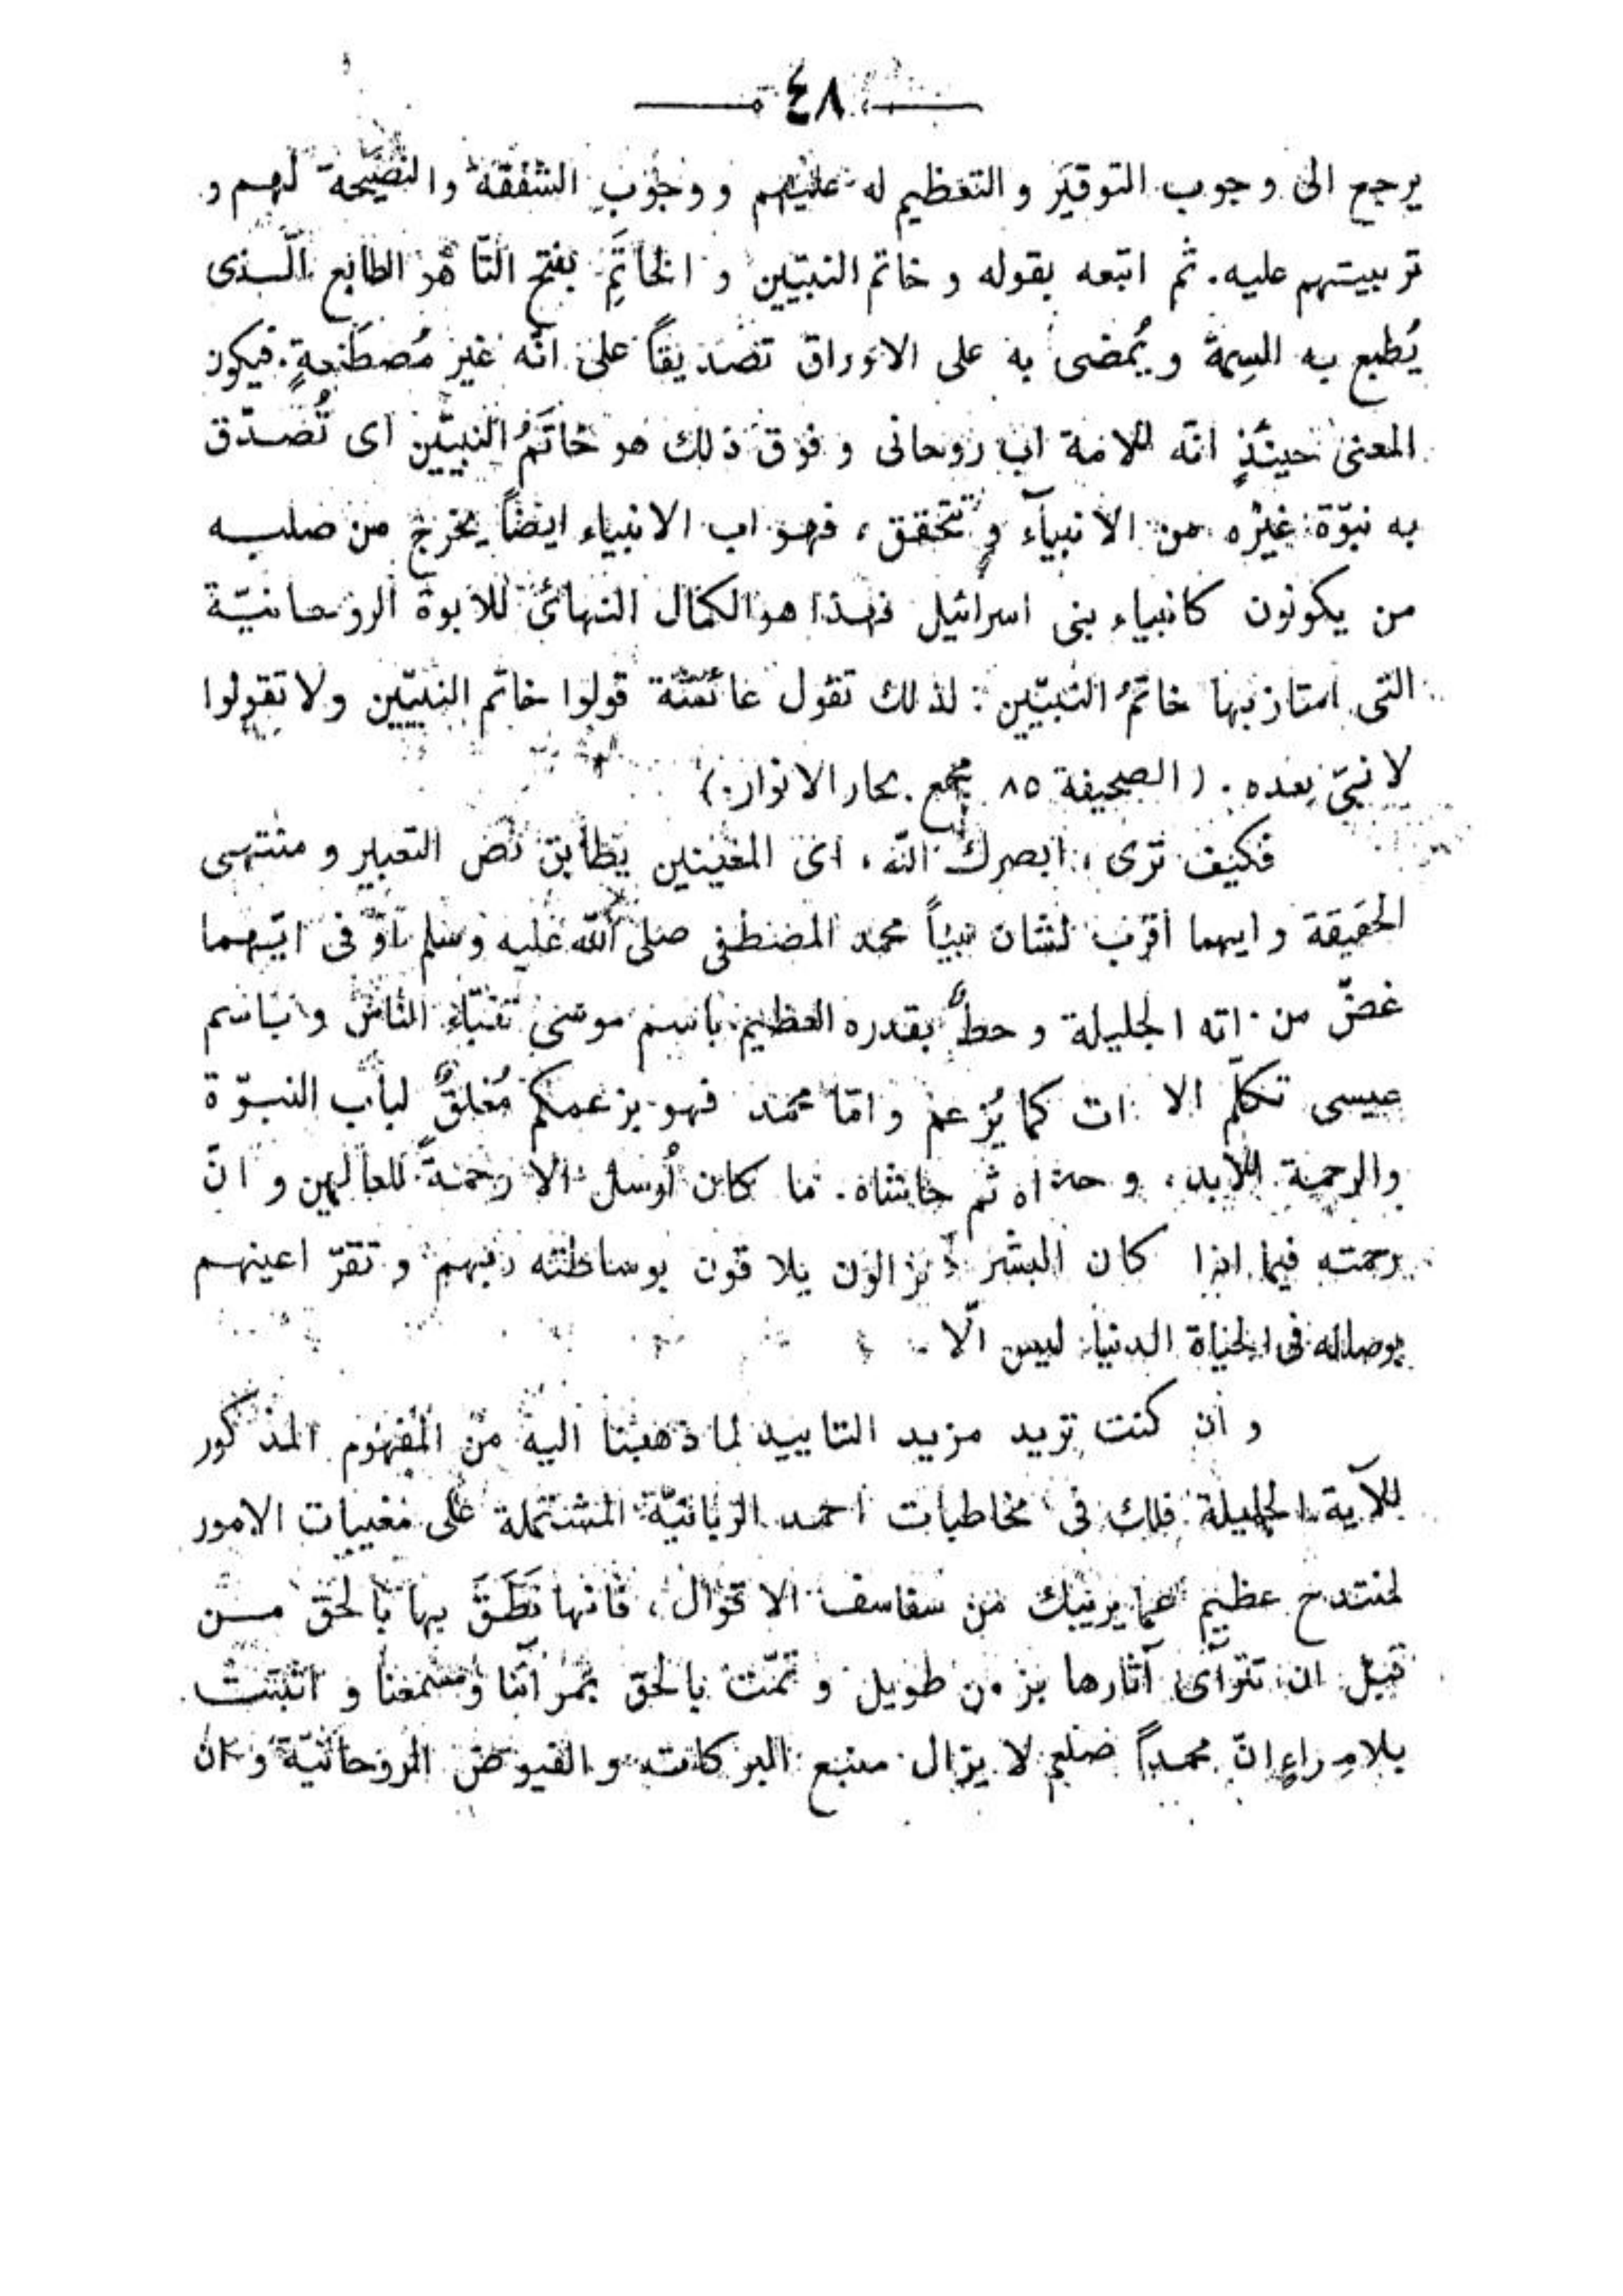 ٤٨
يرجع الى وجوب التوقير والتعظيم له عليهم ووجوب الشفقة والنصيحة لهم و
تربيتهم عليه. ثم اتبعه بقوله و خاتم النبيّين و الخاتَمِ بفتح التّا هو الطابع الّذى
يُطبع به السِمة ويُمضى به على الاوراق تصديقاً على انّه غير مُصطَنعةٍ. فيكون
المعنى حينئذٍ انّه للامة اب روحانى و فوق ذلك هو خاتَمُ النبيّين اى تُصدّق
به نبوّة غيره من الانبيآء و تتحقق، فهو اب الانبياء ايضاً يخرج من صلبه
من يكونون كانبياء بنى اسرائيل فهذا هو الكمال النهائى للابوة الروحانيّة
التى امتاز بها خاتمُ النبيّين: لذلك تقول عائشة قولوا خاتم النبيّين ولا تقولوا
لا نبىّ بعده. (الصحيفة ٨٥ مجمع بحار الانوار.)
فكيف ترى، ابصرك الله، اى المعنيين يطابق نص التعبير و منتهى
الحقيقة و ايهما اقرب لشان نبيّاً محمد المصطفى صلى الله عليه وسلم اوّ فى ايّهما
غضّ من اته الجليلة و حطٌّ بقدره العظيم باسم موسى تنبّاء الناس و باسم
عيسى تكلّم الا ات كما يُزعم و امّا محمد فهو بزعمكم مُغلقٌ لباب النبوّة
والرحمة للابد، و حاشاه ثم حاشاه. ما كان اُرسل الا رحمةً للعالمين و انّ
رحمته فيما اذا كان البشر يزالون يلاقون بوساطته ربهم و تقرّ اعينهم
بوصاله فى الحياة الدنيا ليس الّا
و ان كنت تريد مزيد التاييد لما ذهبنا اليه من المفهوم المذكور
للآية الجليلة فلك فى مخاطبات احمد الربانيّة المشتملة على مغيبات الامور
لمنتدح عظيم عما يريبك من سفاسف الاقوال، فانها نَطَقَ بها بالحق مـن
قبل ان تترآى آثارها بزمن طويل و تمّت بالحق بمرآنا ومسمعنا و اثبتت
بلامِراءٍ انّ محمداً صلعم لا يزال منبع البركات و الفيوض الروحانيّة و ان